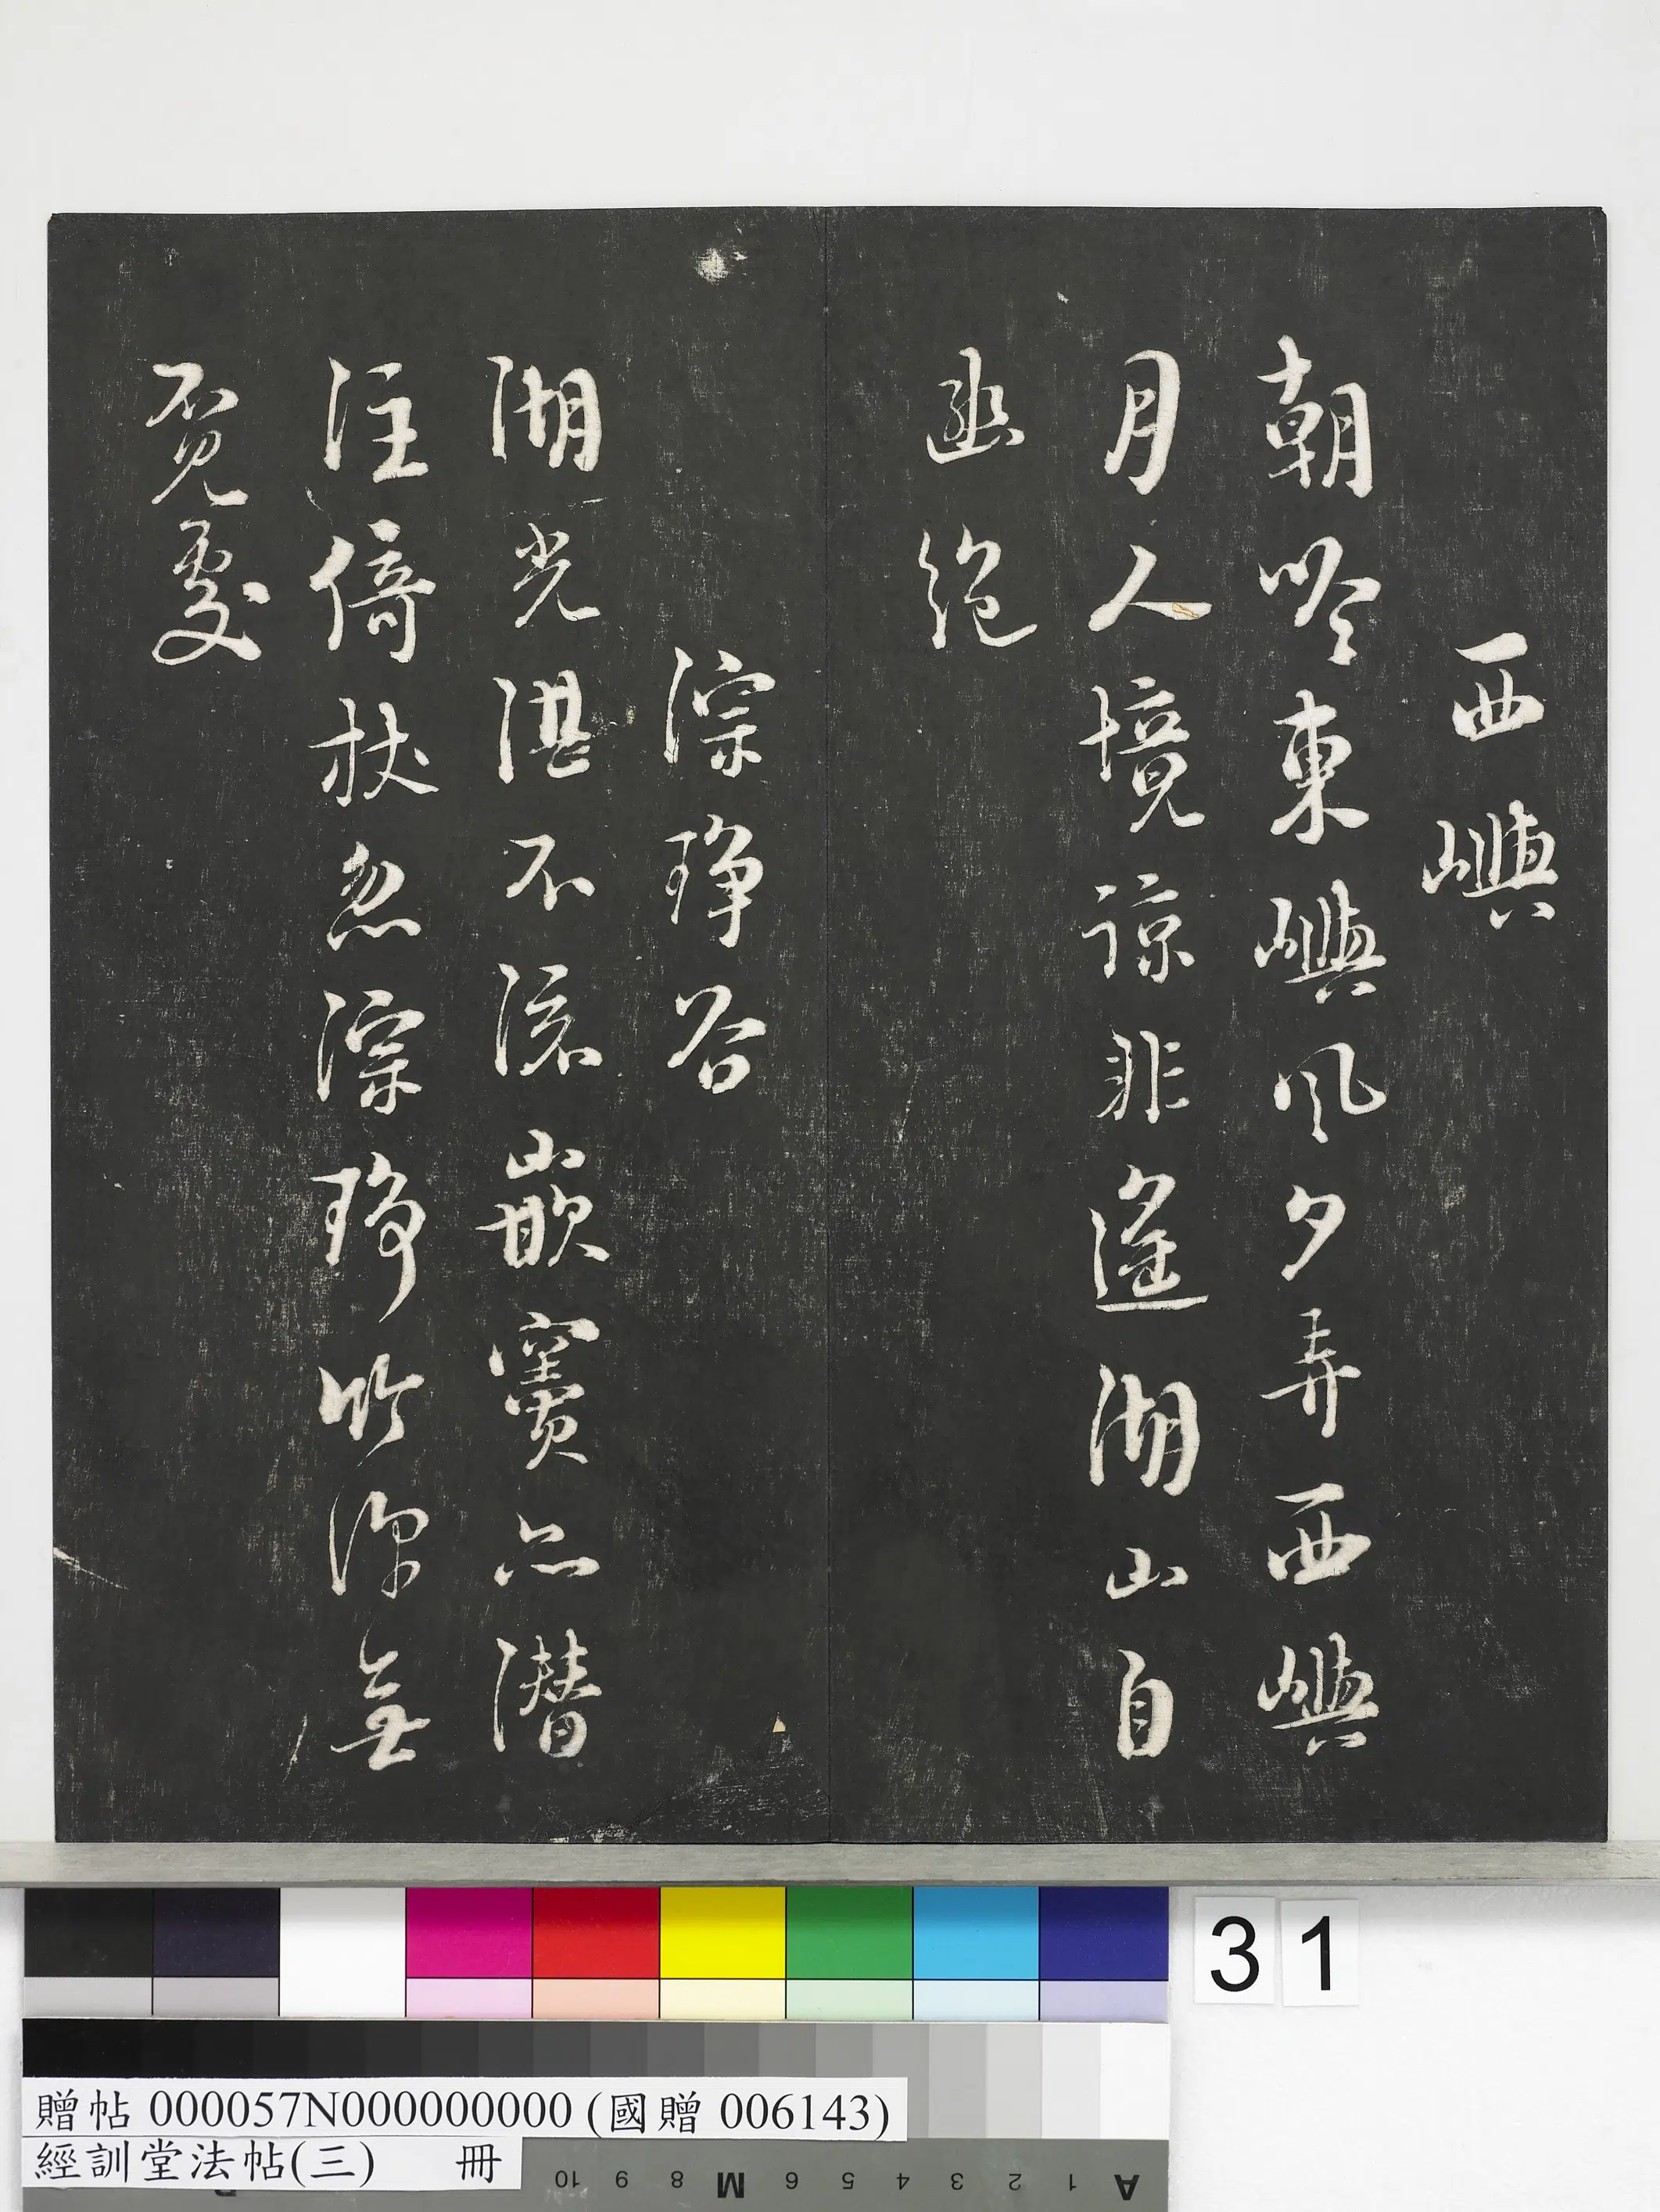 西嶼
朝吟東嶼風夕弄西嶼
月人境諒非遙湖山自
幽絕
淙琤谷
湖光湛不流嵌竇亦潛
注倚杖忽淙琤竹深無
覓處
31
贈帖 000057N000000000 (國贈 006143)
經訓堂法帖(三) 冊
10 9 8 M 6 5 4 3 2 1 A